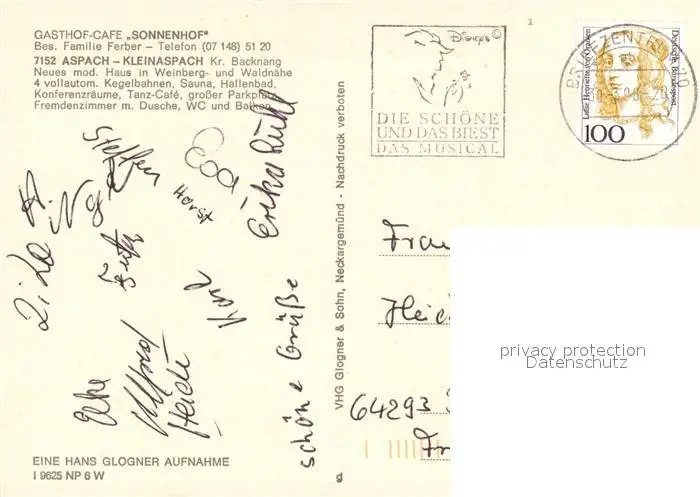 GASTHOF-CAFE „SONNENHOF"
Bes. Familie Ferber – Telefon (07 148) 51 20
7152 ASPACH – KLEINASPACH Kr. Backnang
Neues mod. Haus in Weinberg- und Waldnähe
4 vollautom. Kegelbahnen, Sauna, Hallenbad,
Konferenzräume, Tanz-Café, großer Parkplatz
Fremdenzimmer m. Dusche, WC und Balkon
Erika
Horst
Karl
schöne Grüße
Elke
Heidi
EINE HANS GLOGNER AUFNAHME
I 9625 NP 6 W
VHG Glogner & Sohn, Neckargemünd - Nachdruck verboten
g
DISNEP'S ©
DIE SCHÖNE
UND DAS BIEST
DAS MUSICAL
BRIEFZENTRUM
Deutsche Bundespost
Luise Henriette von Oranien
100
Frau
Heid
64293
privacy protection
Datenschutz